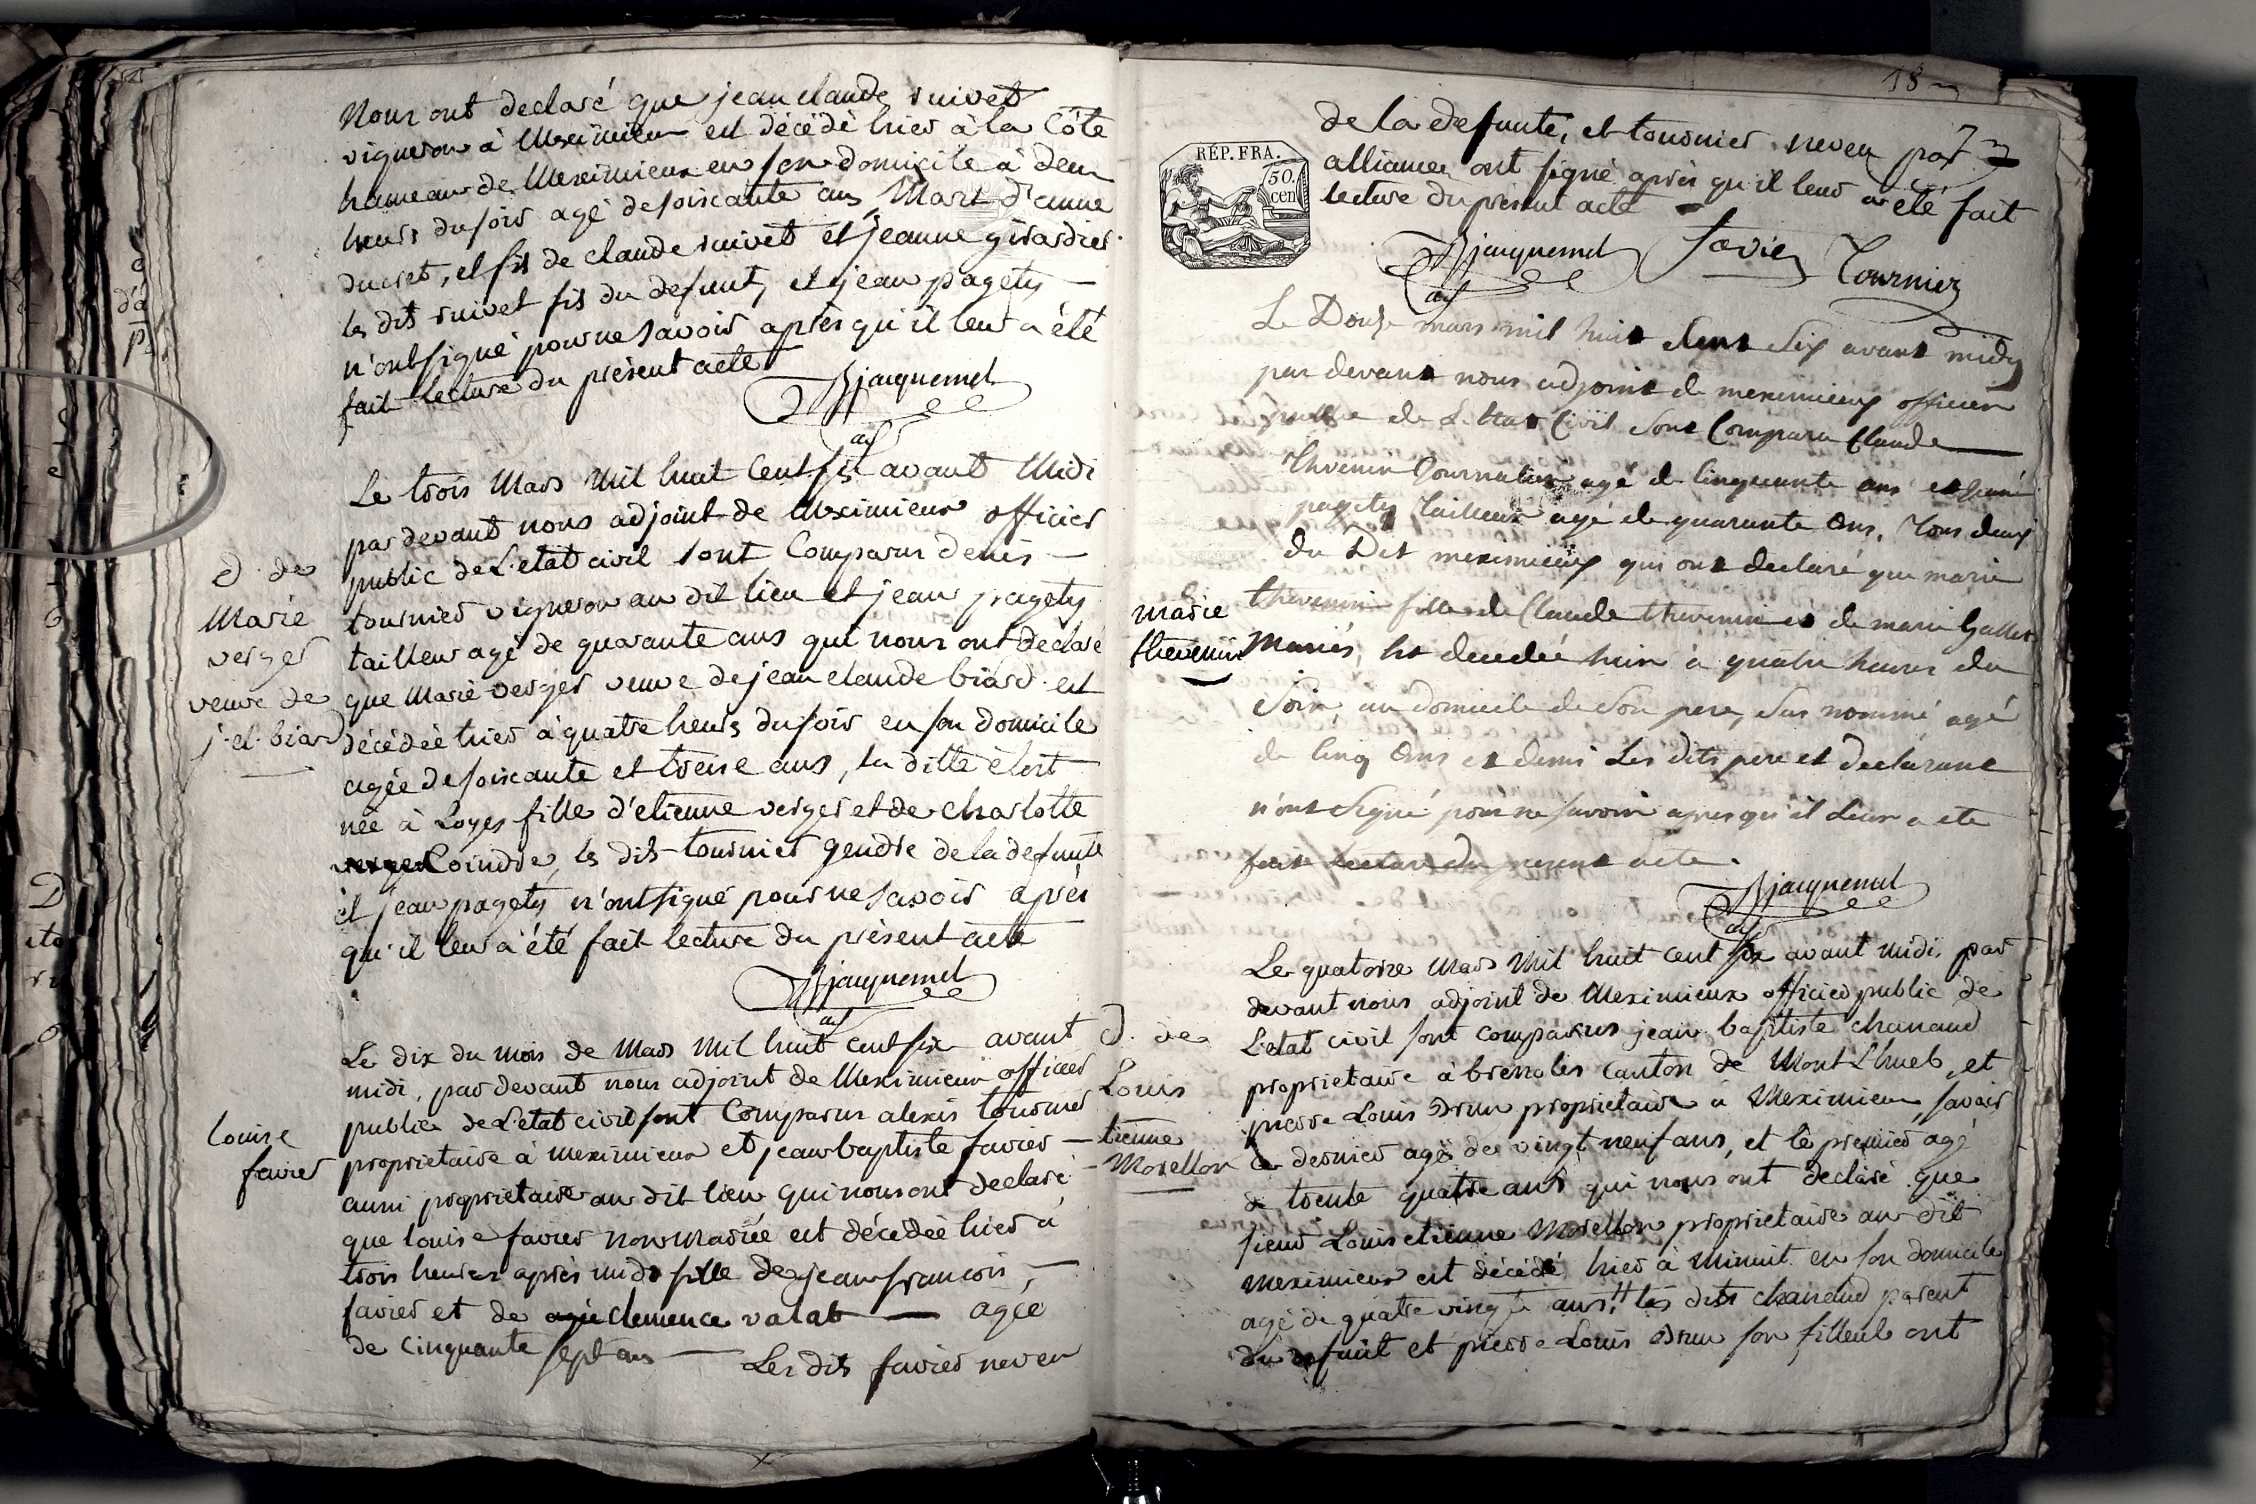 Nous ont declaré que jean claude ruivet
vigneron à Meximieux est décèdè hier à la Côte
hameau de Meximieux en son domicile à deux
heurs du soir agé de soixante ans, Mari d'anne
ducret, et fils de claude ruivet et jeanne girardier
les dits ruivet fils du defunt, et jean pagety
n'ont signé pour ne savoir après qu'il leur a été
fait lecture du présent acte
Bjacquemet
adj
Le trois Mars Mil huit Cent six avant Midi
par devant nous adjoint de Meximieux officier
public de L'etat civil sont Comparus denis
tournier vigneron au dit lieu et jean pagety
tailleur agé de quarante ans qui nous ont dèclaré
que Marie verger veuve de jean claude biard est
décédèe hier à quatre heurs du soir en son domicile
agée de soixante et treise ans, la ditte étoit
née à Loyes fille d'etienne verger et de charlotte
Coindre, les dits tournier gendre de la defunte
et jean pagety n'ont signé pour ne savoir après
qu'il leur a été fait lecture du présent acte
Bjacquemet
adj
d. de
Marie
verger
veuve de
j. cl. biard
Le dix du mois de Mars Mil huit cent six avant
midi, par devant nous adjoint de Meximieux officier
public de L'etat civil sont Comparus alexis tournier
proprietaire à meximieux et jean baptiste favier
aussi proprietaire au dit lieu qui nous ont declaré
que louise favier non mariée est décédèe hier à
trois heures après midi fille de jean francois
favier et de clemence valat agée
de cinquante sept ans Les dits favier neveu
louise
favier
18
7
RÉP. FRA.
50.
cen
de la defunte, et tournier neveu par
alliance, ont signé après qu'il leur a été fait
lecture du présent acte
Bjacquemet favier Tournier
adj
Le Douze mars mil huit Cent Six avant midy
par devant nous adjoint de meximieux officier
public de L'Etat Civil Sont Comparu Claude
Thvenin Journalier agé de Cinquante ans et
pagety Tailleur agé de quarante Ans, Tous deux
du Dit meximieux qui ont declaré que marie
thevenin fille de Claude thevenin et de marie Gallet
Mariés, Est decedée hier à quatre heures du
Soir, au domicile de Son pere, Sus nommé agé
de Cinq Ans et demi Les dits pere et declarant
n'ont Signé pour ne savoir apres qu'il Leur a ete
fait Lecture du present acte.
Bjacquemet
adj
marie
thevenin
Le quatorze Mars Mil huit cent six avant midi, par
devant nous adjoint de Meximieux officier public de
L'etat civil sont comparus jean baptiste chanaud
proprietaire à bressoles canton de Mont Lhuel, et
pierre Louis Drun proprietaire à Meximieux, savoir
ce dernier agé de vingt neuf ans, et le premier agé
de trente quatre ans qui nous ont declaré que
sieur Louis etienne Morellon proprietaire au dit
meximieux est décèdé hier à Minuit en son domicile
agé de quatre vingt ans, les dits chanaud parent
du defunt et pierre Louis Drun son filleul ont
d. de
Louis
tienne
Morellon